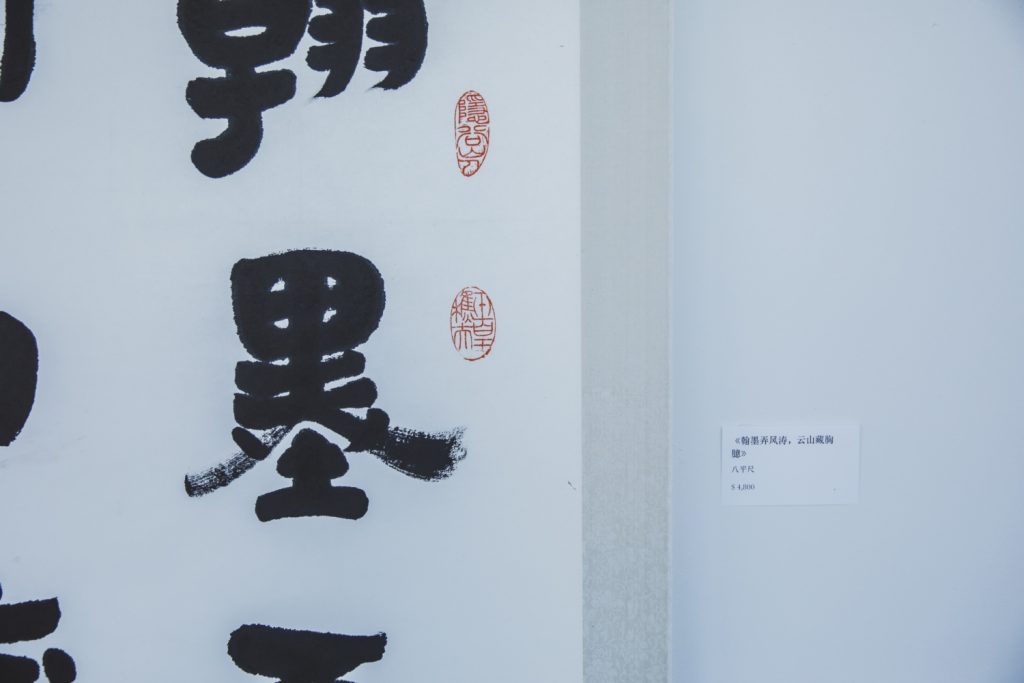 翰
墨
《翰墨弄风涛，云山藏胸
臆》
八平尺
$ 4,800